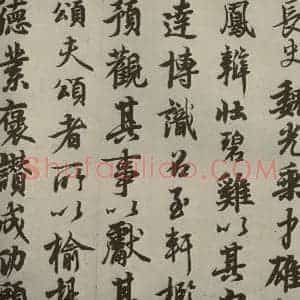 長史魏光乘才雄
鳳辯壯碧雞以其
達博識召至軒檻
預觀其事以獻其
頌夫頌者所以揄揚
德業褒讚成功顧
Shufaziliao.com